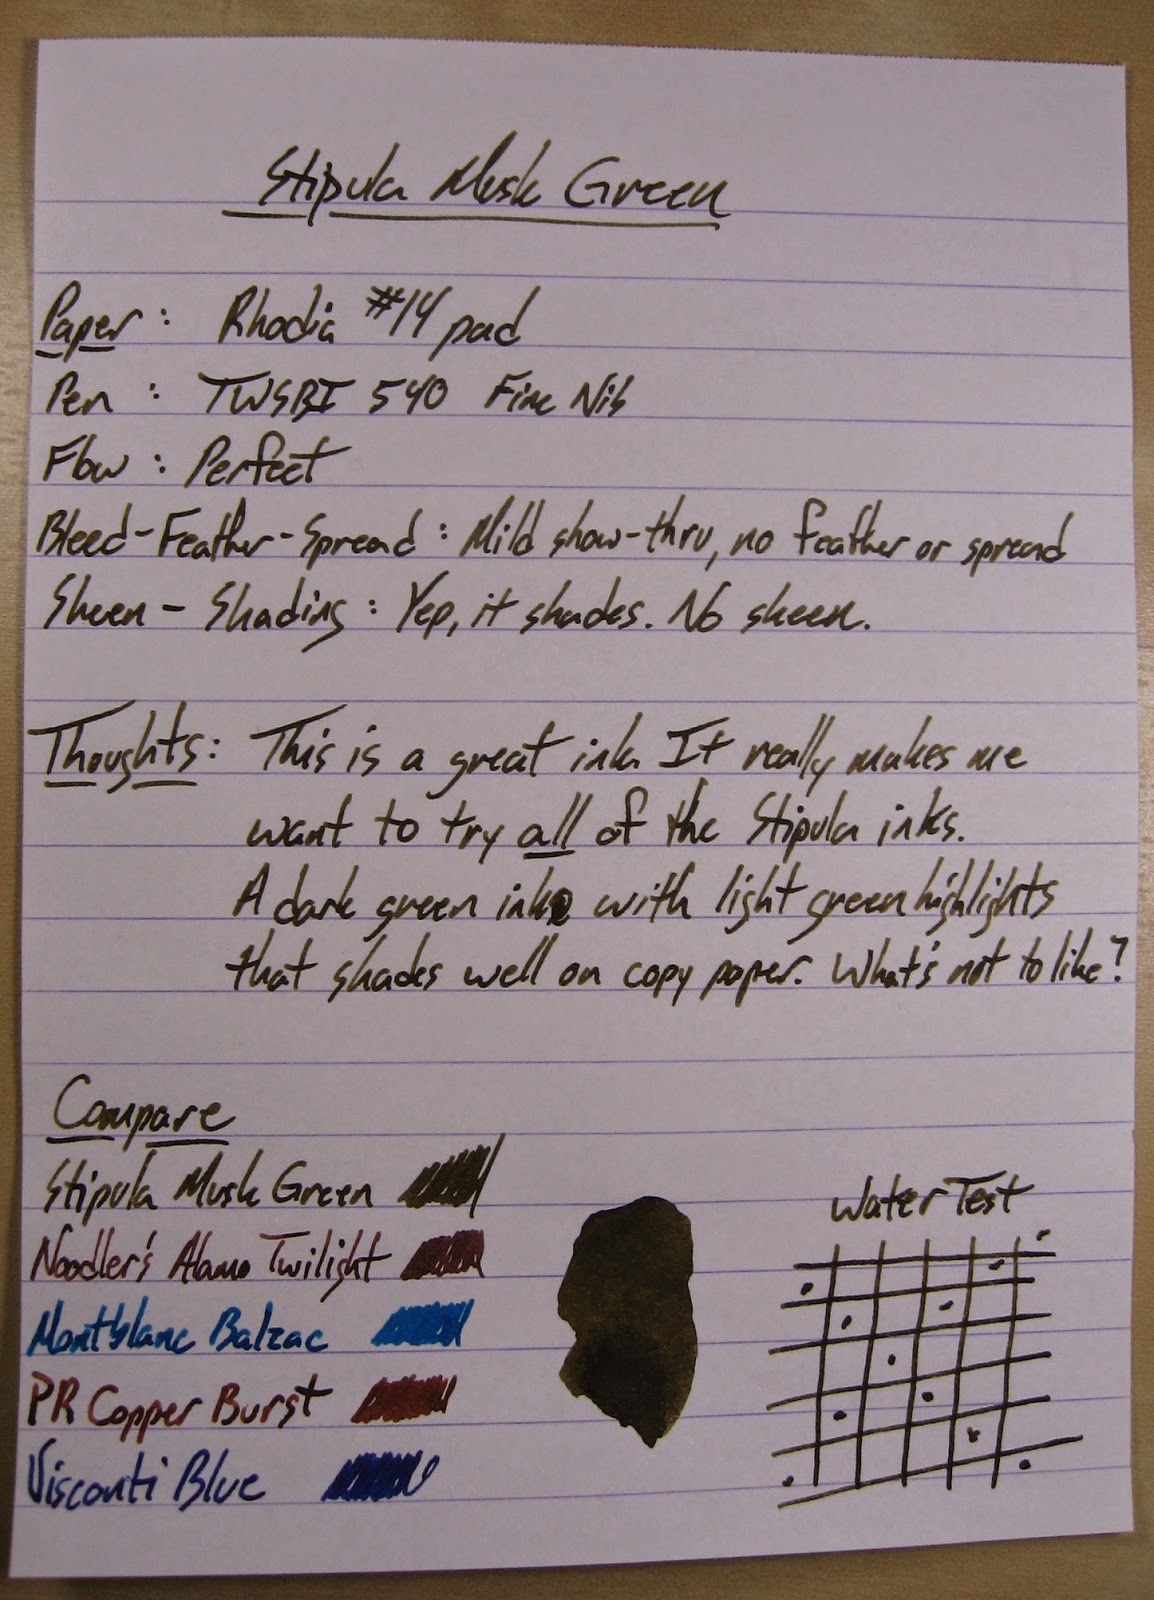 Stipula Musk Green
Paper: Rhodia #14 pad
Pen: TWSBI 540 Fine Nib
Flow: Perfect
Bleed-Feather-Spread: Mild show-thru, no feather or spread
Sheen - Shading: Yep, it shades. No sheen.
Thoughts: This is a great ink. It really makes me
want to try all of the Stipula inks.
A dark green ink with light green highlights
that shades well on copy paper. What's not to like?
Compare
Stipula Musk Green
Noodler's Alamo Twilight
Montblanc Balzac
PR Copper Burst
Visconti Blue
Water Test